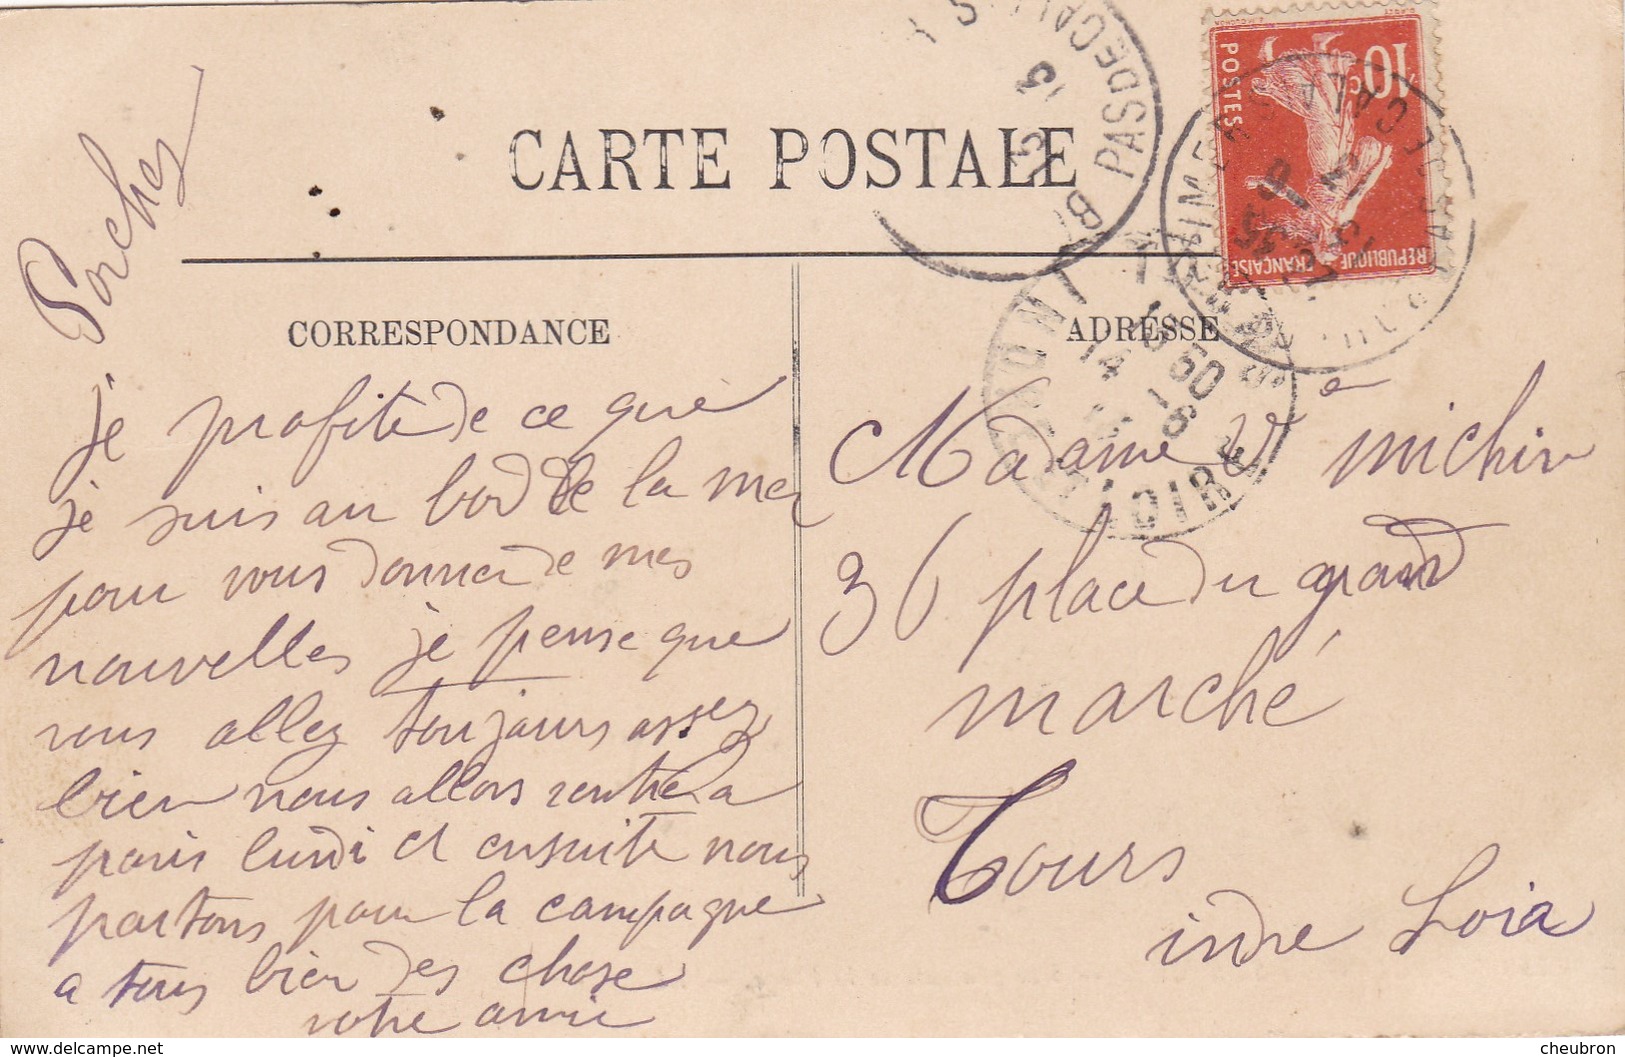 CARTE POSTALE
10c
POSTES
REPUBLIQUE FRANÇAISE
PAS DE CALAIS
INDRE-ET-LOIRE
CORRESPONDANCE
Porcher
je profite de ce que
je suis au bord de la mer
pour vous donner de mes
nouvelles je pense que
vous allez toujours assez
bien nous allons rentré a
paris lundi et ensuite nous
partons pour la campagne
a tous bien des chose
votre amie
ADRESSE
Madame Ve michin
36 place du grand
marché
Tours
indre Loire
https://www.delcampe.net
cheubron